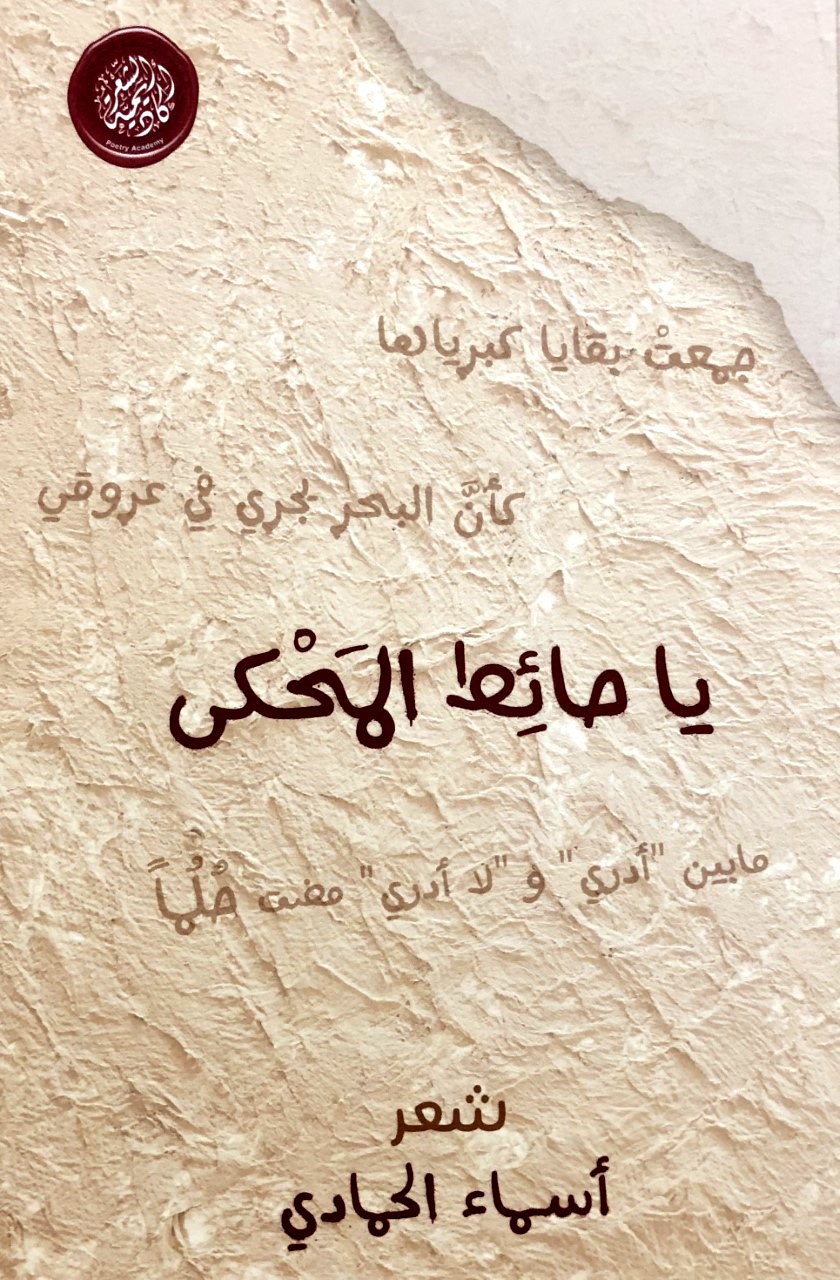 أكاديمية الشعر
Poetry Academy
جمعتْ بقايا كبريائها
كأنَّ البحر يجري في عروقي
يا حائِط المَحْكى
مابين "أدري" و "لا أدري" مضت حُلُماً
شعر
أسماء الحمادي